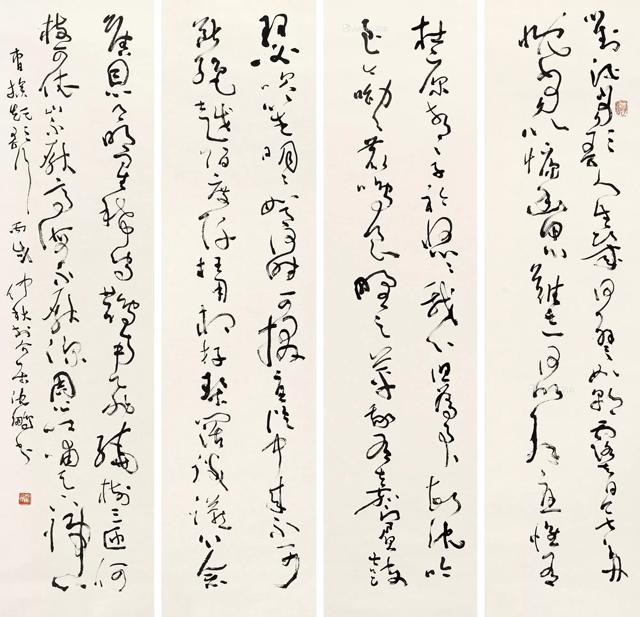 對酒當歌人生幾何譬如朝露去日苦多
慨當以慷幽思難忘何以解憂惟有
杜康青青子衿悠悠我心但為君故沉吟
至今呦呦鹿鳴食野之苹我有嘉賓鼓
瑟吹笙明明如月何時可掇憂從中來不可
斷絕越陌度阡枉用相存契闊談讌心念
舊恩月明星稀烏鵲南飛繞樹三匝何
枝可依山不厭高海不厭深周公吐哺天下歸心
曹操短歌行 丙戌仲秋於介居沈鵬書